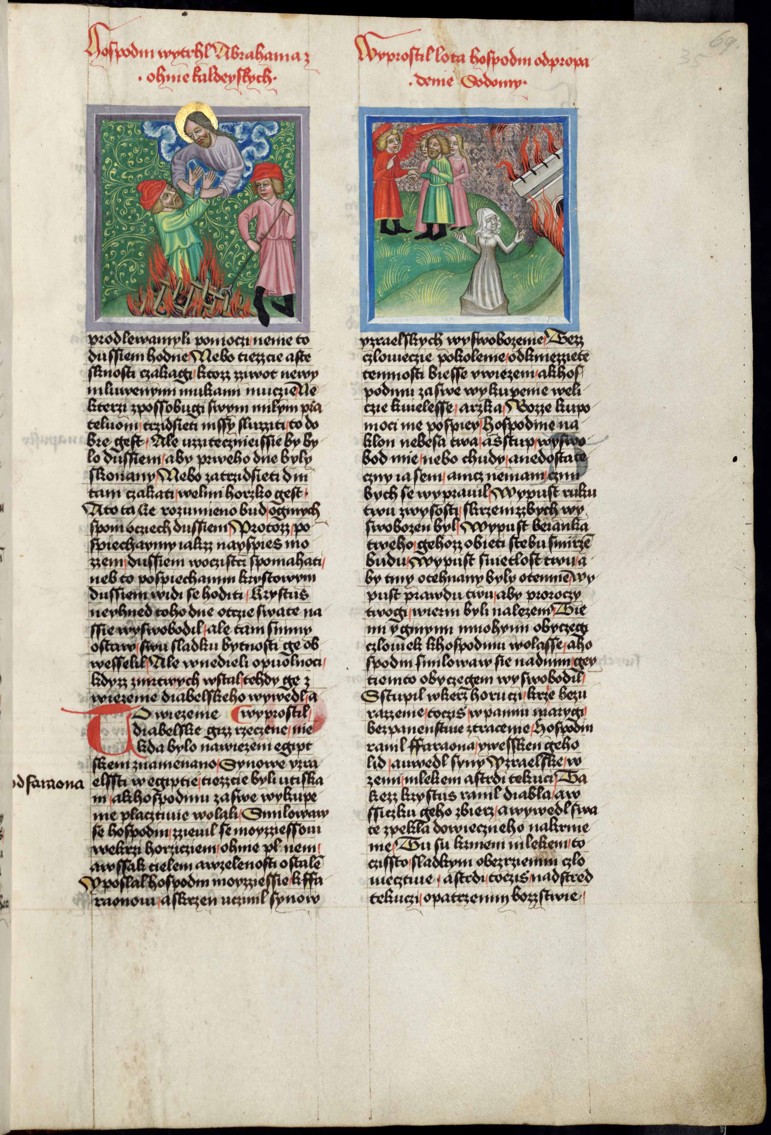 Hospodin wytrhl Abrahama z
ohnie kaldeyskych
prodlewamyli pomoczi neme to
dussiem hodne Nebo tiezcie astr
sknosti czakagi ktoz zzwot newy
mluwenymi mukami muczie Ne
kterzi zpossobugi swym milym pia
teluom trzidsieti missy sluziti to do
bre gest Ale uzitecznieissie by by
lo dussiem aby prweho dne byly
skonany Nebo zatrzidsieti dni
tam czakati welmi horzko gest
A to takke rozumieno bud o gynych
spomoczech dussiem Protoz po
spiechaymy iakz nayspies mo
zzem dussiem woczistci spomahati
neb to pospiechanim krystowym
dussiem widi se hoditi Krystus
neyhned toho dne otcze swate na
ssie wyswobodil ale tam s nimy
ostaw swu sladku bytnosti ge ob
wesselil Ale w nedieli o puolnoci
kdyz z mrtwych wstal tehdy ge z
wiezenie diabelskeho wywedl a
To wiezenie wyprostil
diabelske giz rzeczene nie
kda bylo na wiezeni egipt
skem znamenano Synowe yzra
elssti w egiptie tiezcie byli utiska
ni a k hospodinu za swe wykupe
nie placztiwie wolali Smilowaw
se hospodin zziewil se moyziessowi
w ekrzi horziciem ohnie plnem
a wssak cielem a w zelenosti ostale
Y poslal hospodin moyziessie k ffa
raonowi a skrzen uczinil synow
od faraona
Wyprostil lota hospodin od propa
denie Sodomy
yzraelskych wyswobozenie Tezz
czlowieczie pokolenie od knieziete
temnosti biesse u wiezeni a k hos
podinu za swe wykupenie weli
czie kwielesse arzka Bozze ku po
moci mi pospiey Hospodine na
klon nebesa twa a stup wyswo
bod mie nebo chudy a nedostate
czny ia sem aniz nemam czim
bych se wyprawil Wypust ruku
twu z wysosti skrze nizzbych wy
swobozen byl Wypust beranka
tweho gehozz obieti s tebu smirzen
budu Wypust swietlost twu a
by tmy otehnany byly ote mne Wy
pust prawdu twu aby proroczy
twogi wierni byli nalezeni Tie
mi y gynymi mnohymi obyczegi
czlowiek k hospodinu wolasse a ho
spodin smilowaw sie nad nim gey
tiemto obyczegem wyswobodil
Sstupil w kerz horuczi krze bezu
razzenie toczis w pannu marygi
bez panenstwie ztracenie Hospodin
ranil ffaraona y wesken geho
lid a uwedl syny yzraelske w
zemi mlekem a strdi tekuci Ta
kezz krystus ranil diabla a w
ssiczku geho zbierz a wywedl swa
te z pekla do wiecznieho nakrmie
nie Tu su krmeni mlekem to
czissto sladkym obezrzenim czlo
wieczstwie a strdi toczis nadstred
tekuczi opatrzenim bozzstwie
69
35